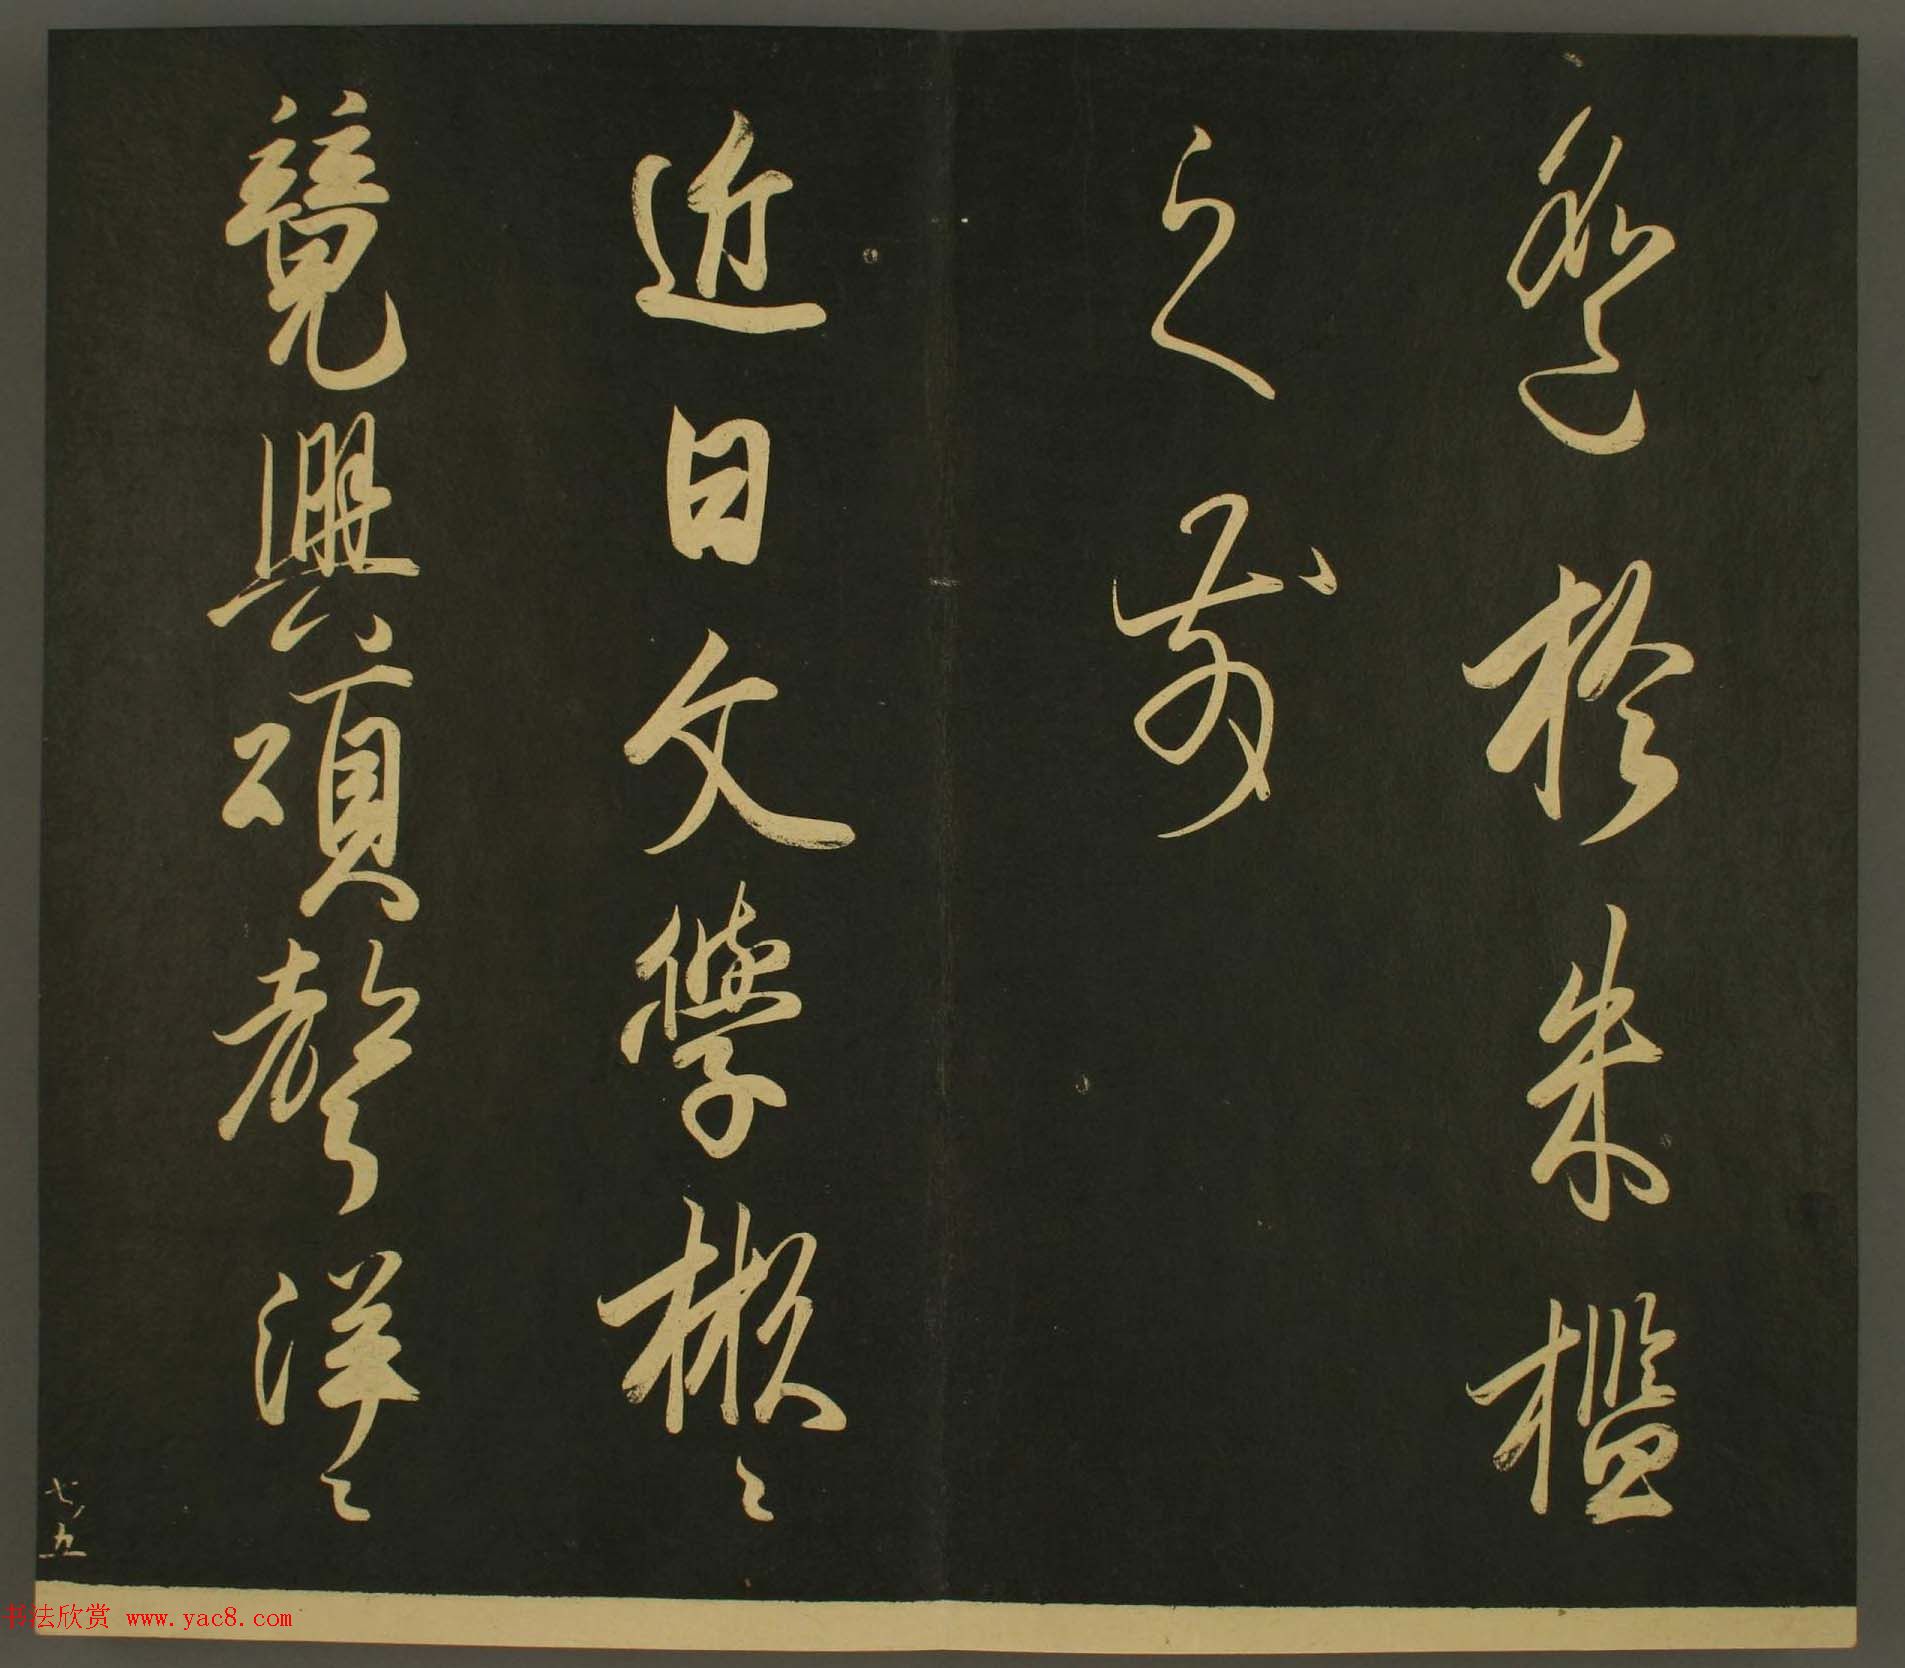 於朱檻
之前
近日文學彬〻
競興頌聲洋〻
七五
书法欣赏 www.yac8.com